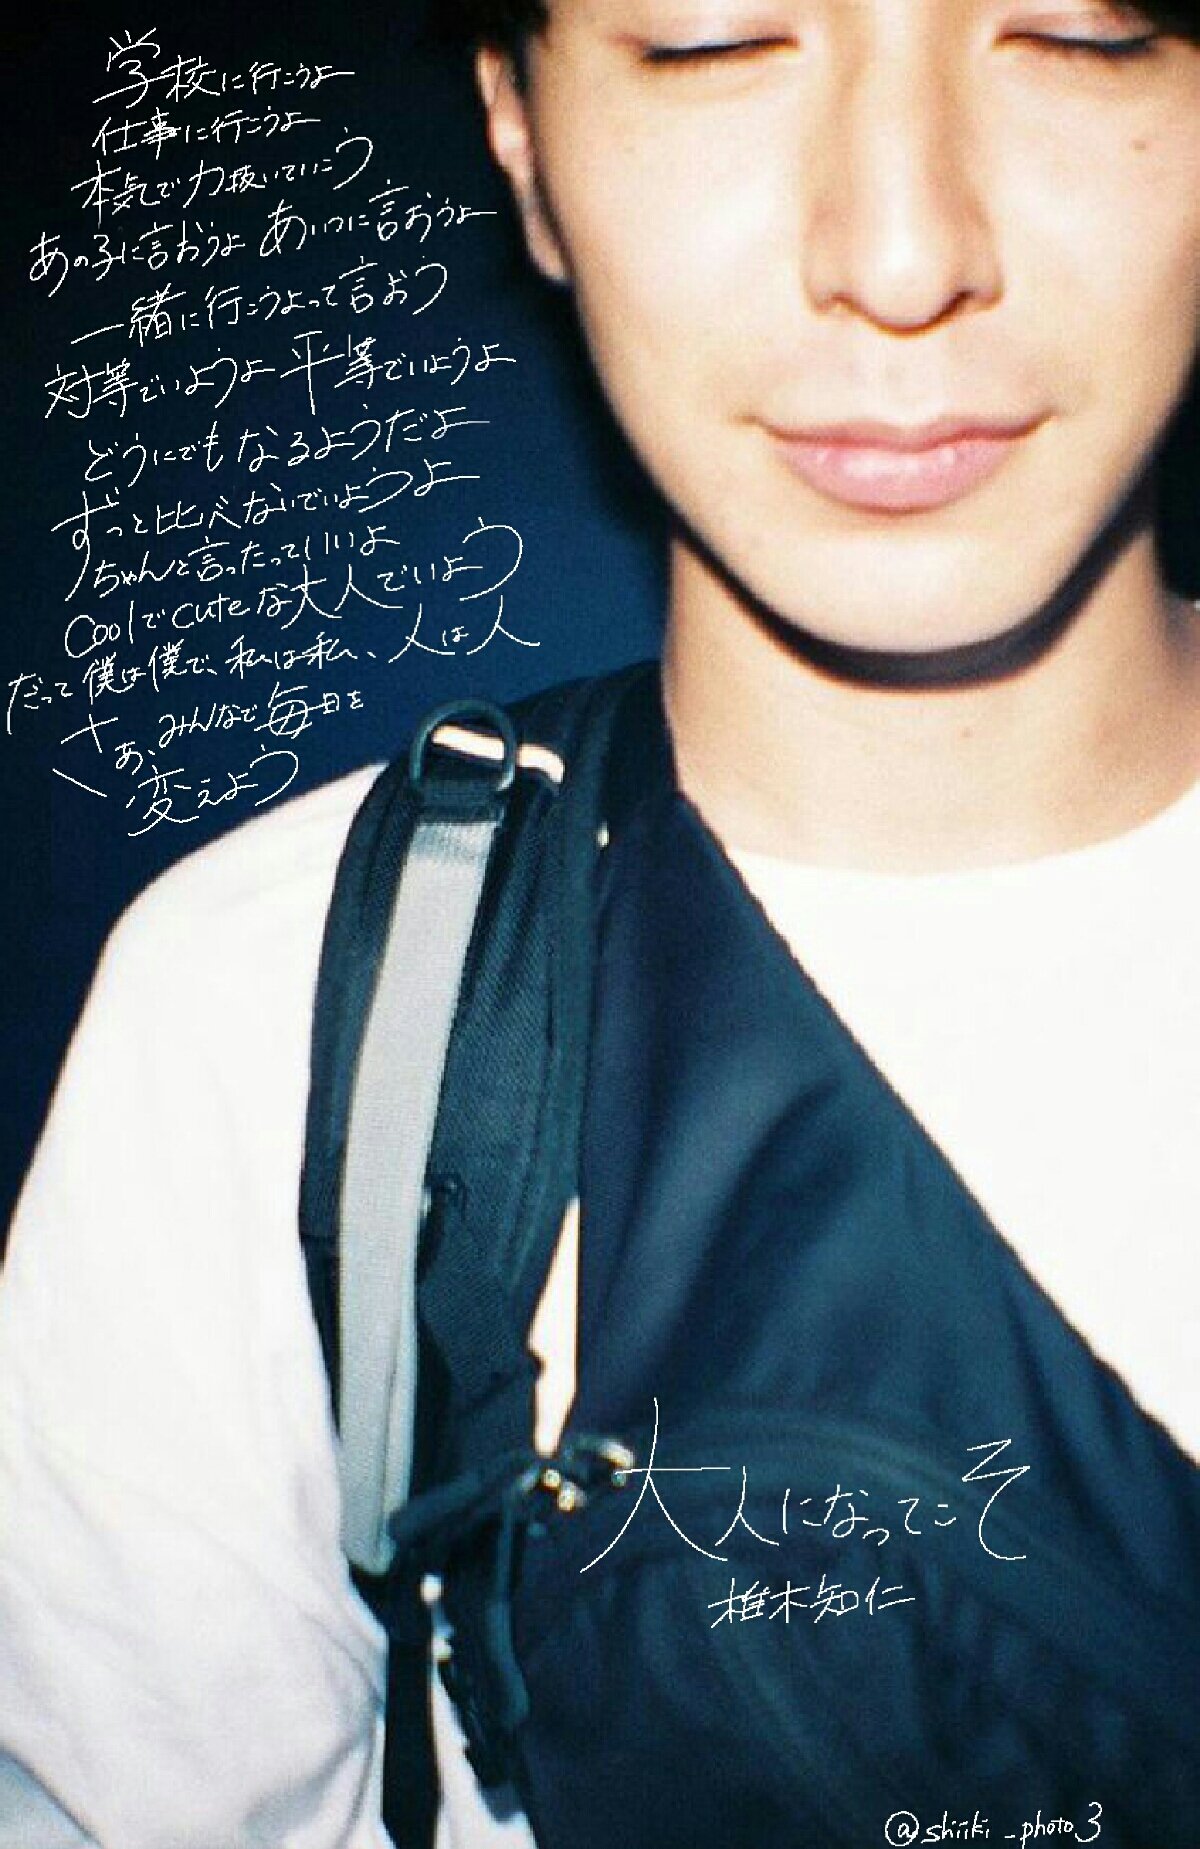 学校に行こうよ
仕事に行こうよ
本気で力抜いていこう
あの子に言おうよ あいつに言おうよ
一緒に行こうよって言おう
対等でいようよ 平等でいようよ
どうにでもなるようだよ
ずっと比べないでいようよ
ちゃんと言ったっていいよ
Coolでcuteな大人でいよう
だって僕は僕で、私は私、人は人
さあ、みんなで毎日を
変えよう
大人になってこそ
椎木知仁
@shiiki_photo3